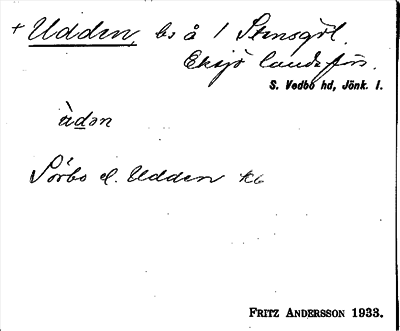 + Udden, bs å 1 Stensgöl.
Eksjö landsförs.
S. Vedbo hd, Jönk. l.
ùdən
Sörbo el. Udden kb
FRITZ ANDERSSON 1933.